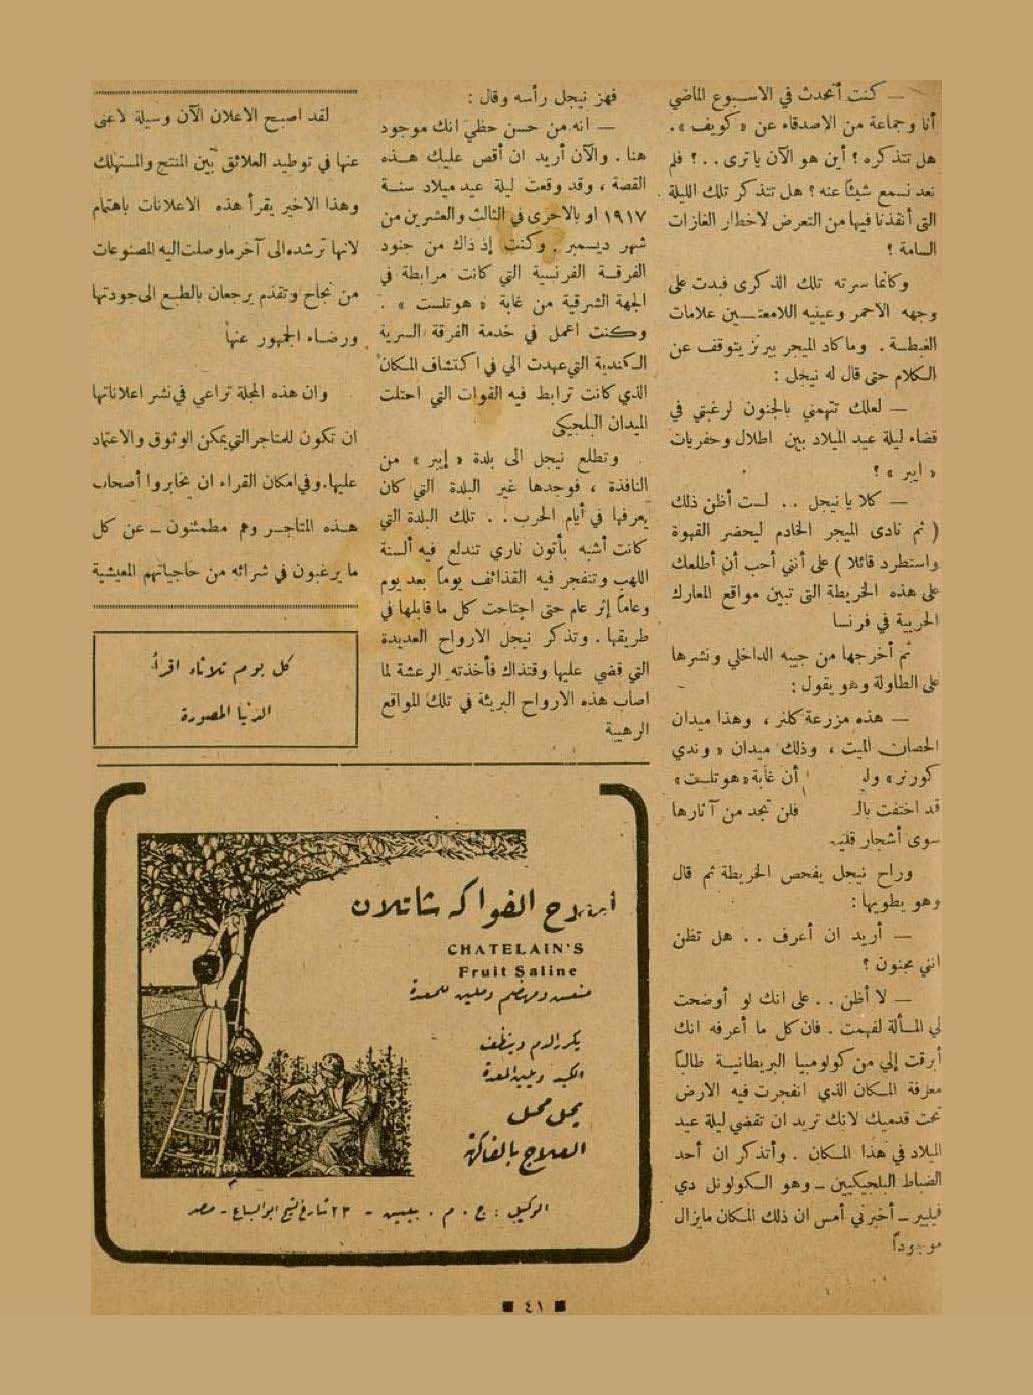 — كنت أتحدث في الاسبوع الماضي
أنا وجماعة من الاصدقاء عن «كويف».
هل تتذكره؟ أين هو الآن ياترى..؟ فلم
نعد نسمع شيئاً عنه؟ هل تتذكر تلك الليلة
التى أنقذنا فيها من التعرض لاخطار الغازات
السامة؟
وكانما سرته تلك الذكرى فبدت على
وجهه الاحمر وعينيه اللامعتين علامات
الغبطة. وماكاد الميجر بيرنز يتوقف عن
الكلام حتى قال له نيجل:
— لعلك تتهمني بالجنون لرغبتي في
قضاء ليلة عيد الميلاد بين اطلال وحفريات
«ايبر»؟
— كلا يا نيجل.. لست أظن ذلك
(ثم نادى الميجر الخادم ليحضر القهوة
واستطرد قائلا) على أنني أحب أن أطلعك
على هذه الخريطة التى تبين مواقع المعارك
الحربية في فرنسا
ثم أخرجها من جيبه الداخلي ونشرها
على الطاولة وهو يقول:
— هذه مزرعة كلنر، وهذا ميدان
الحصان الميت، وذلك ميدان «وندي
كورنر» أن غابة «هوتلست»
قد اختفت فلن تجد من آثارها
سوى أشجار
وراح نيجل يفحص الخريطة ثم قال
وهو يطويها:
— أريد ان أعرف.. هل تظن
انني مجنون؟
— لا أظن.. على انك لو أوضحت
لي المسألة لفهمت. فان كل ما أعرفه انك
أبرقت إلي من كولومبيا البريطانية طالباً
معرفة المكان الذي انفجرت فيه الارض
تحت قدميك لانك تريد ان تقضي ليلة عيد
الميلاد في هذا المكان. وأتذكر ان أحد
الضباط البلجيكيين — وهو الكولونل دي
فيليير — أخبرني أمس ان ذلك المكان مايزال
موجوداً
فهز نيجل رأسه وقال:
— انه من حسن حظي انك موجود
هنا. والآن أريد ان أقص عليك هذه
القصة، وقد وقعت ليلة عيد ميلاد سنة
١٩١٧ او بالاحرى في الثالث والعشرين من
شهر ديسمبر. وكنت إذ ذاك من جنود
الفرقة الفرنسية التي كانت مرابطة في
الجهة الشرقية من غابة «هوتلست».
وكنت اعمل في خدمة الفرقة السرية
الكندية التي عهدت الي في اكتشاف المكان
الذي كانت ترابط فيه القوات التي احتلت
الميدان البلجيكى
وتطلع نيجل الى بلدة «إيبر» من
النافذة، فوجدها غير البلدة التي كان
يعرفها في أيام الحرب.. تلك البلدة التي
كانت أشبه بأتون ناري تندلع فيه ألسنة
اللهب وتنفجر فيه القذائف يوماً بعد يوم
وعاماً إثر عام حتى اجتاحت كل ما قابلها في
طريقها. وتذكر نيجل الارواح العديدة
التي قضي عليها وقتذاك فأخذته الرعشة لما
اصاب هذه الارواح البريئة في تلك المواقع
الرهيبة
لقد اصبح الاعلان الآن وسيلة لاغنى
عنها في توطيد العلائق بين المنتج والمستهلك
وهذا الاخير يقرأ هذه الاعلانات باهتمام
لانها ترشده الى آخر ماوصلت اليه المصنوعات
من نجاح وتقدم يرجعان بالطبع الى جودتها
ورضاء الجمهور عنها
وان هذه المجلة تراعي في نشر اعلاناتها
ان تكون للمتاجر التي يمكن الوثوق والاعتماد
عليها. وفي امكان القراء ان يخابروا أصحاب
هذه المتاجر وهم مطمئنون — عن كل
ما يرغبون في شرائه من حاجياتهم المعيشية
كل يوم ثلاثاء اقرأ
الدنيا المصورة
أملاح الفواكه شاتلان
CHATELAIN'S
Fruit Saline
منعس ومهضم وملين للمعدة
يكرر الدم وينظف
الكبد ويلين المعدة
يحل محل
العلاج بالفاكهة
الوكيل: ج. م. بينيش - ٢٣ شارع الشيخ ابو السباع - مصر
٤١